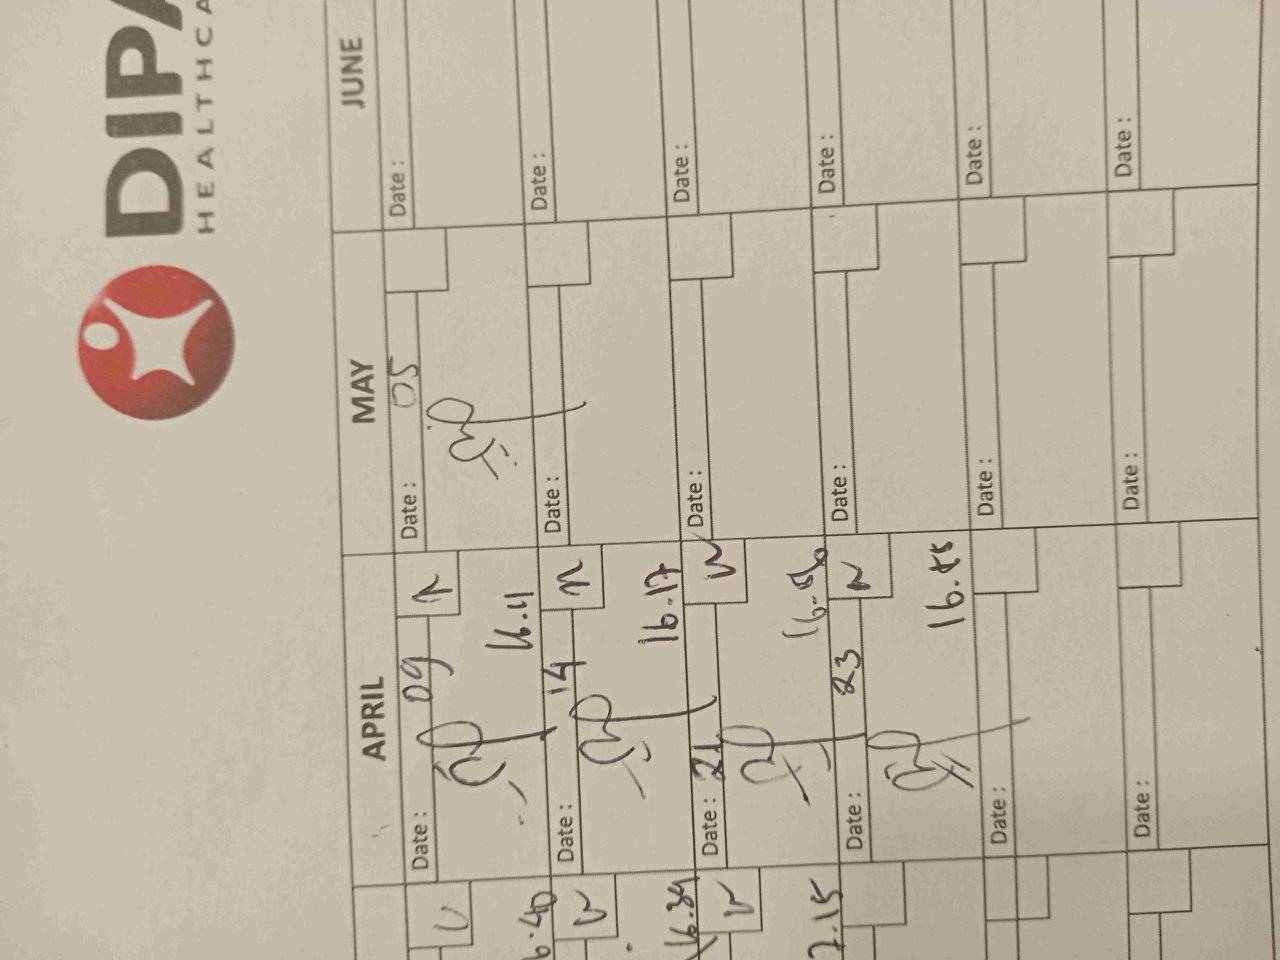 DIPA
HEALTHCA
APRIL MAY JUNE
Date : 09 Date : 05 Date :
16.11
16.40
Date : 14 Date : Date :
16.17
16.39
Date : 21 Date : Date :
7.15
Date : 23 Date : Date :
Date : Date : Date :
Date : Date : Date :